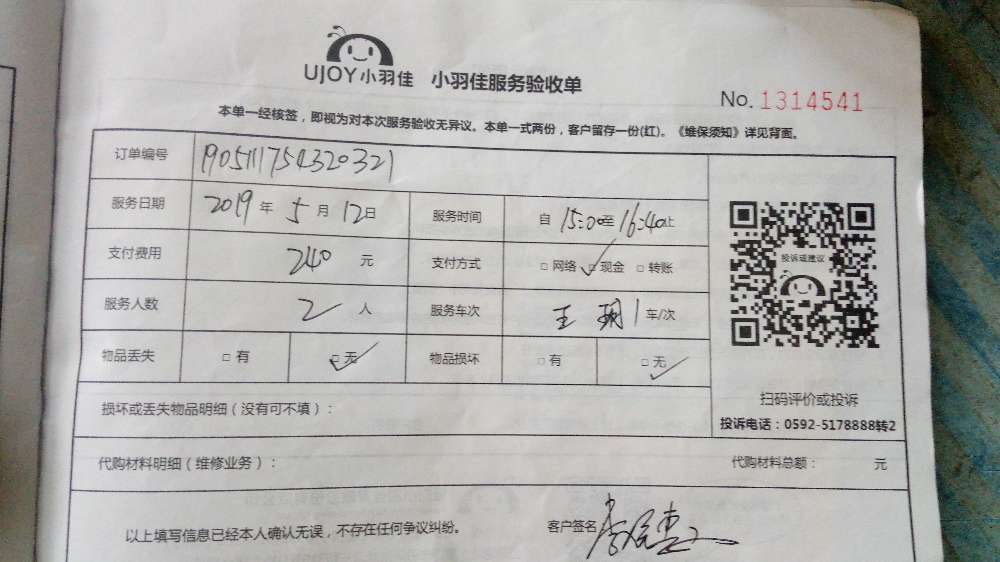 UJOY小羽佳 小羽佳服务验收单
No. 1314541
本单一经核签，即视为对本次服务验收无异议。本单一式两份，客户留存一份(红)。《维保须知》详见背面。
订单编号 1905111754320321
服务日期 2019 年 5 月 12 日 服务时间 自 15:00 至 16:40 止
支付费用 240 元 支付方式 □ 网络 □ 现金 □ 转账
投诉或建议
服务人数 2 人 服务车次 王 1 车/次
物品丢失 □ 有 □ 无 物品损坏 □ 有 □ 无
扫码评价或投诉
损坏或丢失物品明细（没有可不填）：
投诉电话：0592-5178888转2
代购材料明细（维修业务）： 代购材料总额： 元
以上填写信息已经本人确认无误，不存在任何争议纠纷。 客户签名